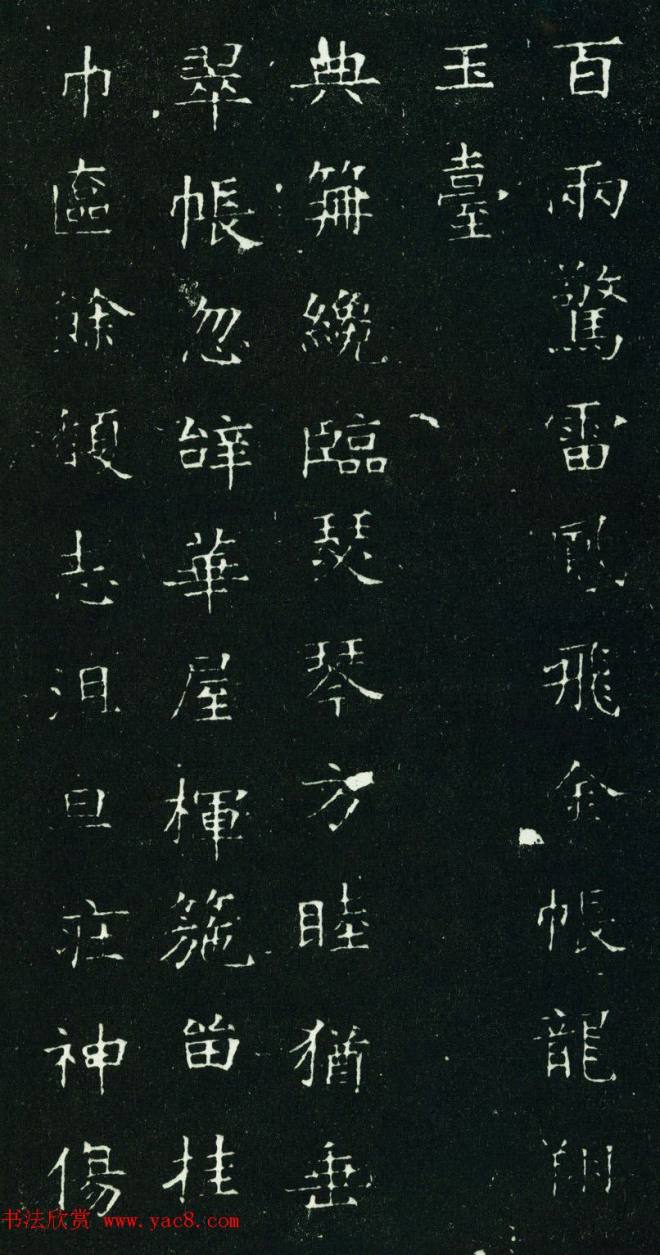 百兩驚雷鳳飛金帳龍翔
玉臺
典笧纔臨瑟琴方睦猶垂
翠帳忽辝華屋楎箷留挂
巾匳餘馥志沮旦莊神傷
书法欣赏 www.yac8.com